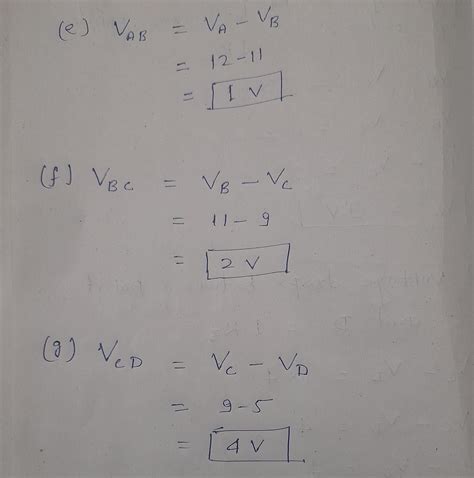 (e) V_AB = V_A - V_B
= 12-11
= 1 V
(f) V_BC = V_B - V_C
= 11-9
= 2 V
(g) V_CD = V_C - V_D
= 9-5
= 4 V